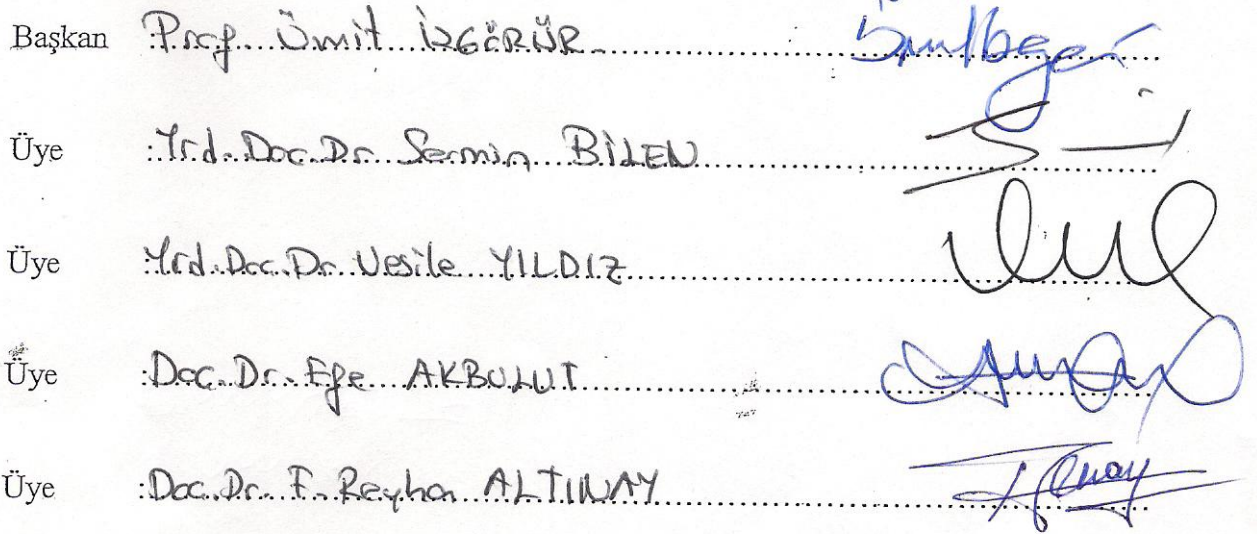 Başkan Prof. Ümit İŞGÖRÜR
Üye :Yrd. Doc. Dr. Sermin BİLEN
Üye :Yrd. Doc. Dr. Vesile YILDIZ
Üye :Doc. Dr. Efe AKBULUT
Üye :Doc. Dr. F. Reyhan ALTINAY